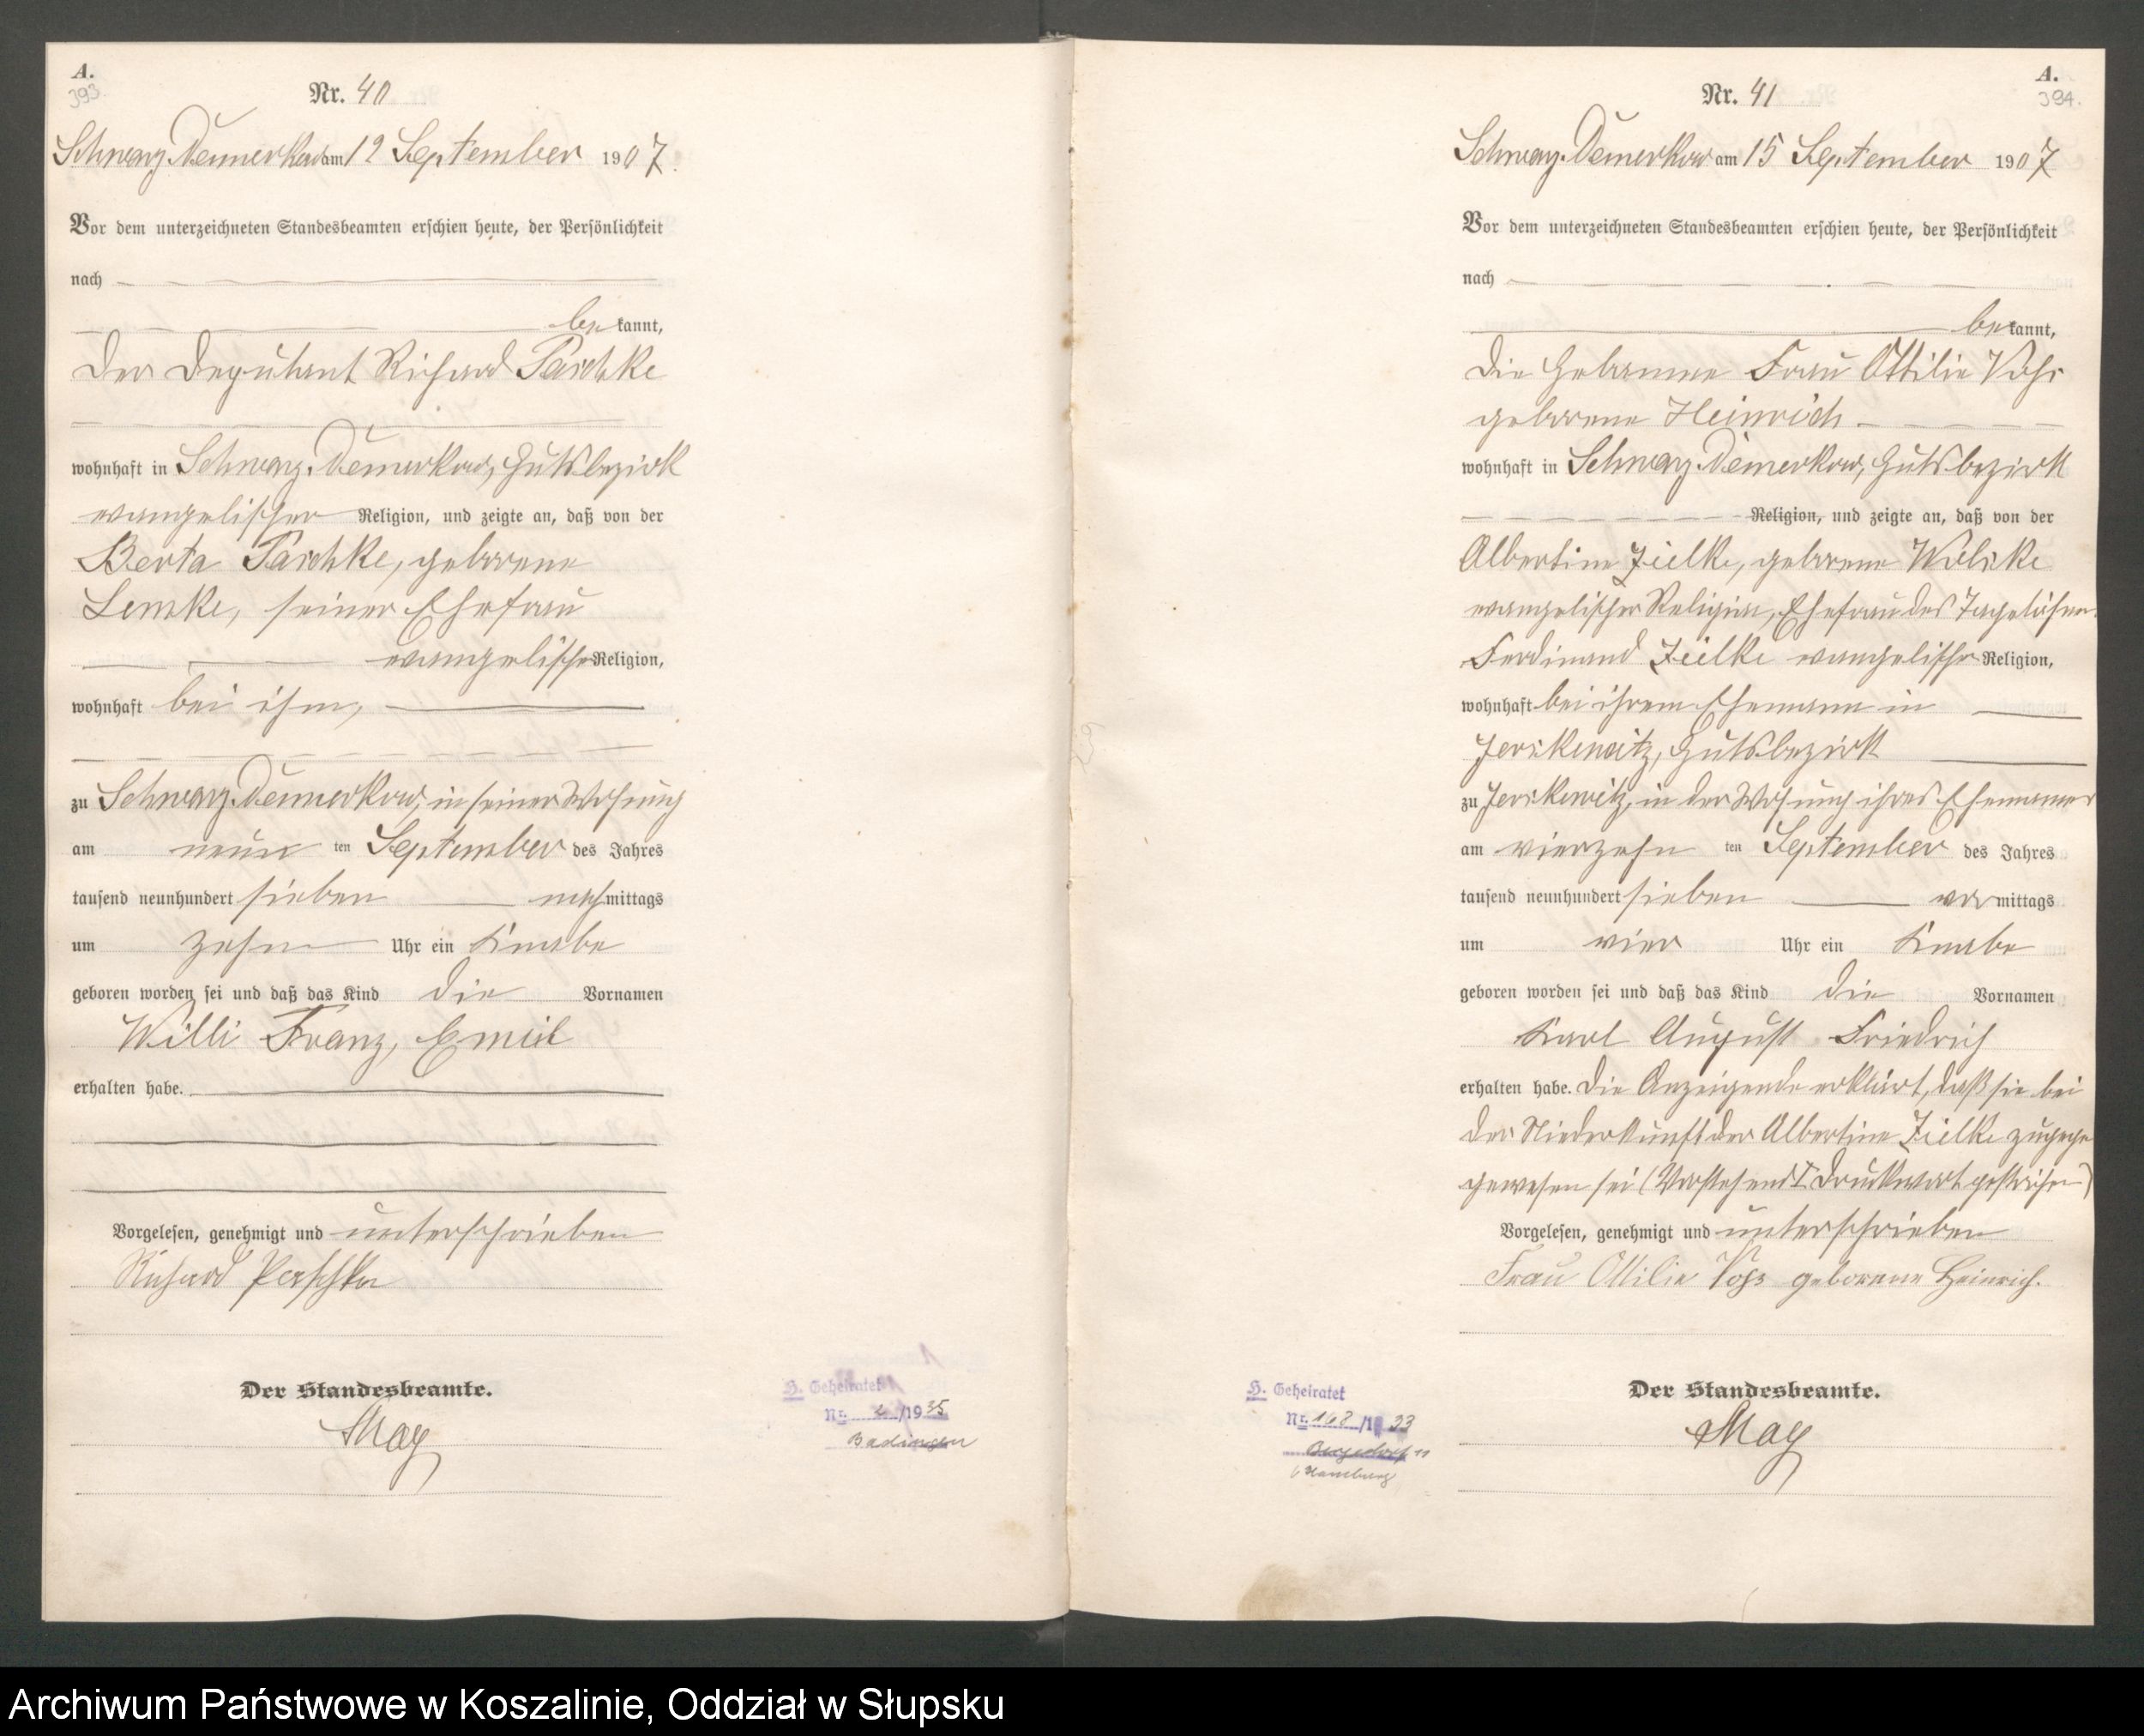 A.
393.
Nr. 40
Schwarz Damerkow am 12 September 1907.
Vor dem unterzeichneten Standesbeamten erschien heute, der Persönlichkeit
nach
bekannt,
der Deputant Richard Paschke
wohnhaft in Schwarz Damerkow, Gutsbezirk
evangelischer Religion, und zeigte an, daß von der
Berta Paschke, geborene
Lemke, seiner Ehefrau
evangelischer Religion,
wohnhaft bei ihm,
zu Schwarz Damerkow, in seiner Wohnung
am neun ten September des Jahres
tausend neunhundert sieben nachmittags
um zehn Uhr ein Knabe
geboren worden sei und daß das Kind die Vornamen
Willi Franz, Emil
erhalten habe.
Vorgelesen, genehmigt und unterschrieben
Richard Paschke
Der Standesbeamte.
H. Geheiratet
Nr. /1935
A.
394.
Nr. 41
Schwarz Damerkow am 15 September 1907
Vor dem unterzeichneten Standesbeamten erschien heute, der Persönlichkeit
nach
bekannt,
die Hebamme Frau Ottilie Voß
geborene Heinrich
wohnhaft in Schwarz Damerkow, Gutsbezirk
Religion, und zeigte an, daß von der
Albertine Zielke, geborene
evangelischer Religion, Ehefrau des Tagelöhners
Ferdinand Zielke evangelischer Religion,
wohnhaft bei ihrem Ehemann in
Jerskewitz, Gutsbezirk
zu Jerskewitz, in der Wohnung ihres Ehemannes
am vierzehn ten September des Jahres
tausend neunhundert sieben vormittags
um vier Uhr ein Knabe
geboren worden sei und daß das Kind die Vornamen
Karl August Friedrich
erhalten habe. Die Anzeigende erklärt, daß sie bei
der Niederkunft der Albertine Zielke zugegen
gewesen sei (Vorstehend 1 Druckwort gestrichen)
Vorgelesen, genehmigt und unterschrieben
Frau Ottilie Voß geborene Heinrich.
Der Standesbeamte.
H. Geheiratet
Nr. 168/1933
Hamburg
Archiwum Państwowe w Koszalinie, Oddział w Słupsku